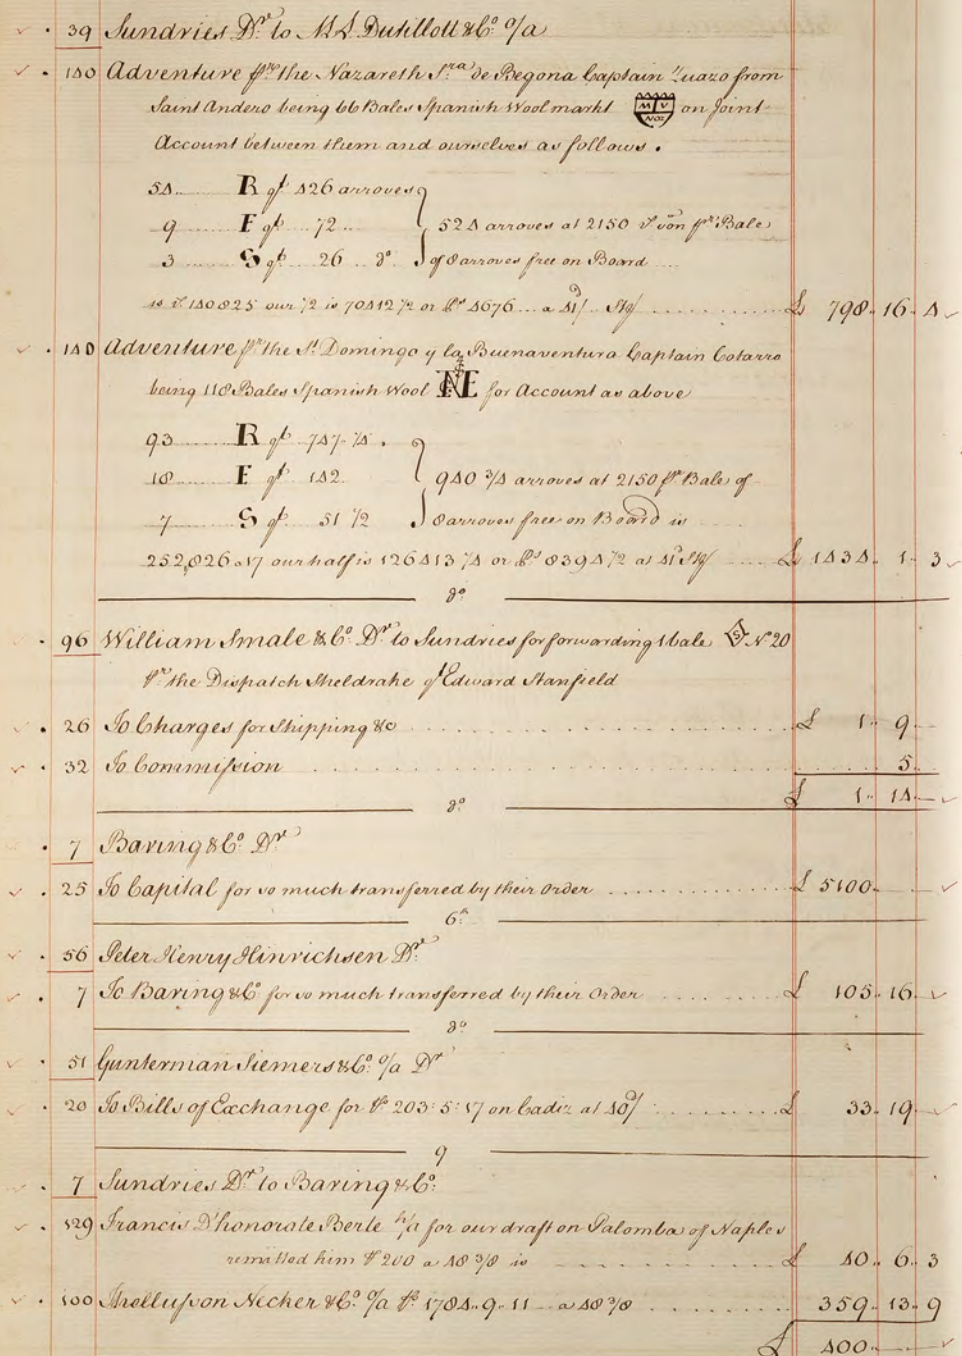 39 Sundries Dr. to M L Dutillott & Co. o/a
140 Adventure pr. the Nazareth Sra de Begona Captain from
Saint Andero being 66 Bales Spanish Wool markt MV NOZ on Joint
Account between them and ourselves as follows.
54 R qt 426 arroves
9 F qt 72 524 arroves at 2150 von pr. Bale
3 S qt 26 do of 8 arroves free on Board
is 140825 our 1/2 is 70412 1/2 or 4676 a 41/ Stg £ 798. 16. 4
140 Adventure pr. the St Domingo y la Buenaventura Captain Cotarro
being 118 Bales Spanish Wool NE for Account as above
93 R qt 747 1/4.
18 F qt 142 940 3/4 arroves at 2150 pr. Bale of
7 S qt 51 1/2 8 arroves free on Board is
252,826.17 our half is 126413 1/4 or 8394 1/2 at 41d Stg £ 1434. 1. 3
do
96 William Smale & Co. Dr. to Sundries for forwarding 1 bale S No 20
pr. the Dispatch Sheldrake of Edward Stanfield
26 To Charges for Shipping &c £ 1. 9
32 To Commission 5
£ 1. 14
do
7 Baring & Co. Dr
25 To Capital for so much transferred by their Order £ 5100
6th
56 Peter Henry Hinrichsen Dr
7 To Baring & Co. for so much transferred by their Order £ 105. 16
do
51 Gunterman Siemers & Co. o/a Dr
20 To Bills of Exchange for 203:5:17 on Cadiz at 40d/ £ 33. 19
9
7 Sundries Dr. to Baring & Co.
129 Francis D'honorate Berte h/a for our draft on Palomba of Naples
remitted him 200 a 48 3/8 is £ 40. 6. 3
100 Thellusson Necker & Co. o/a 1784.9.11 a 48 3/8 359. 13. 9
£ 400